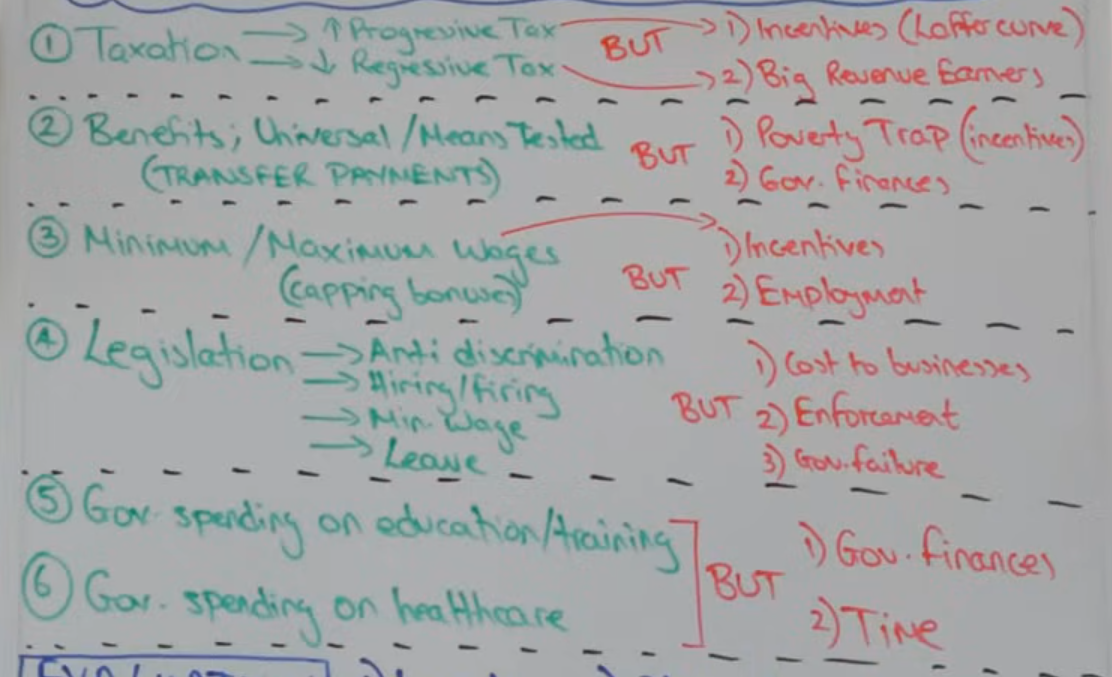 ① Taxation → ↑ Progressive Tax BUT → 1) Incentives (Laffer curve)
→ ↓ Regressive Tax → 2) Big Revenue Earners
② Benefits; Universal/Means Tested BUT 1) Poverty Trap (incentives)
(TRANSFER PAYMENTS) 2) Gov. finances
③ Minimum/Maximum Wages BUT 1) Incentives
(capping bonuses) 2) Employment
④ Legislation → Anti discrimination BUT 1) Cost to businesses
→ Hiring/firing 2) Enforcement
→ Min. Wage 3) Gov. failure
→ Leave
⑤ Gov. spending on education/training BUT 1) Gov. finances
⑥ Gov. spending on healthcare 2) Time